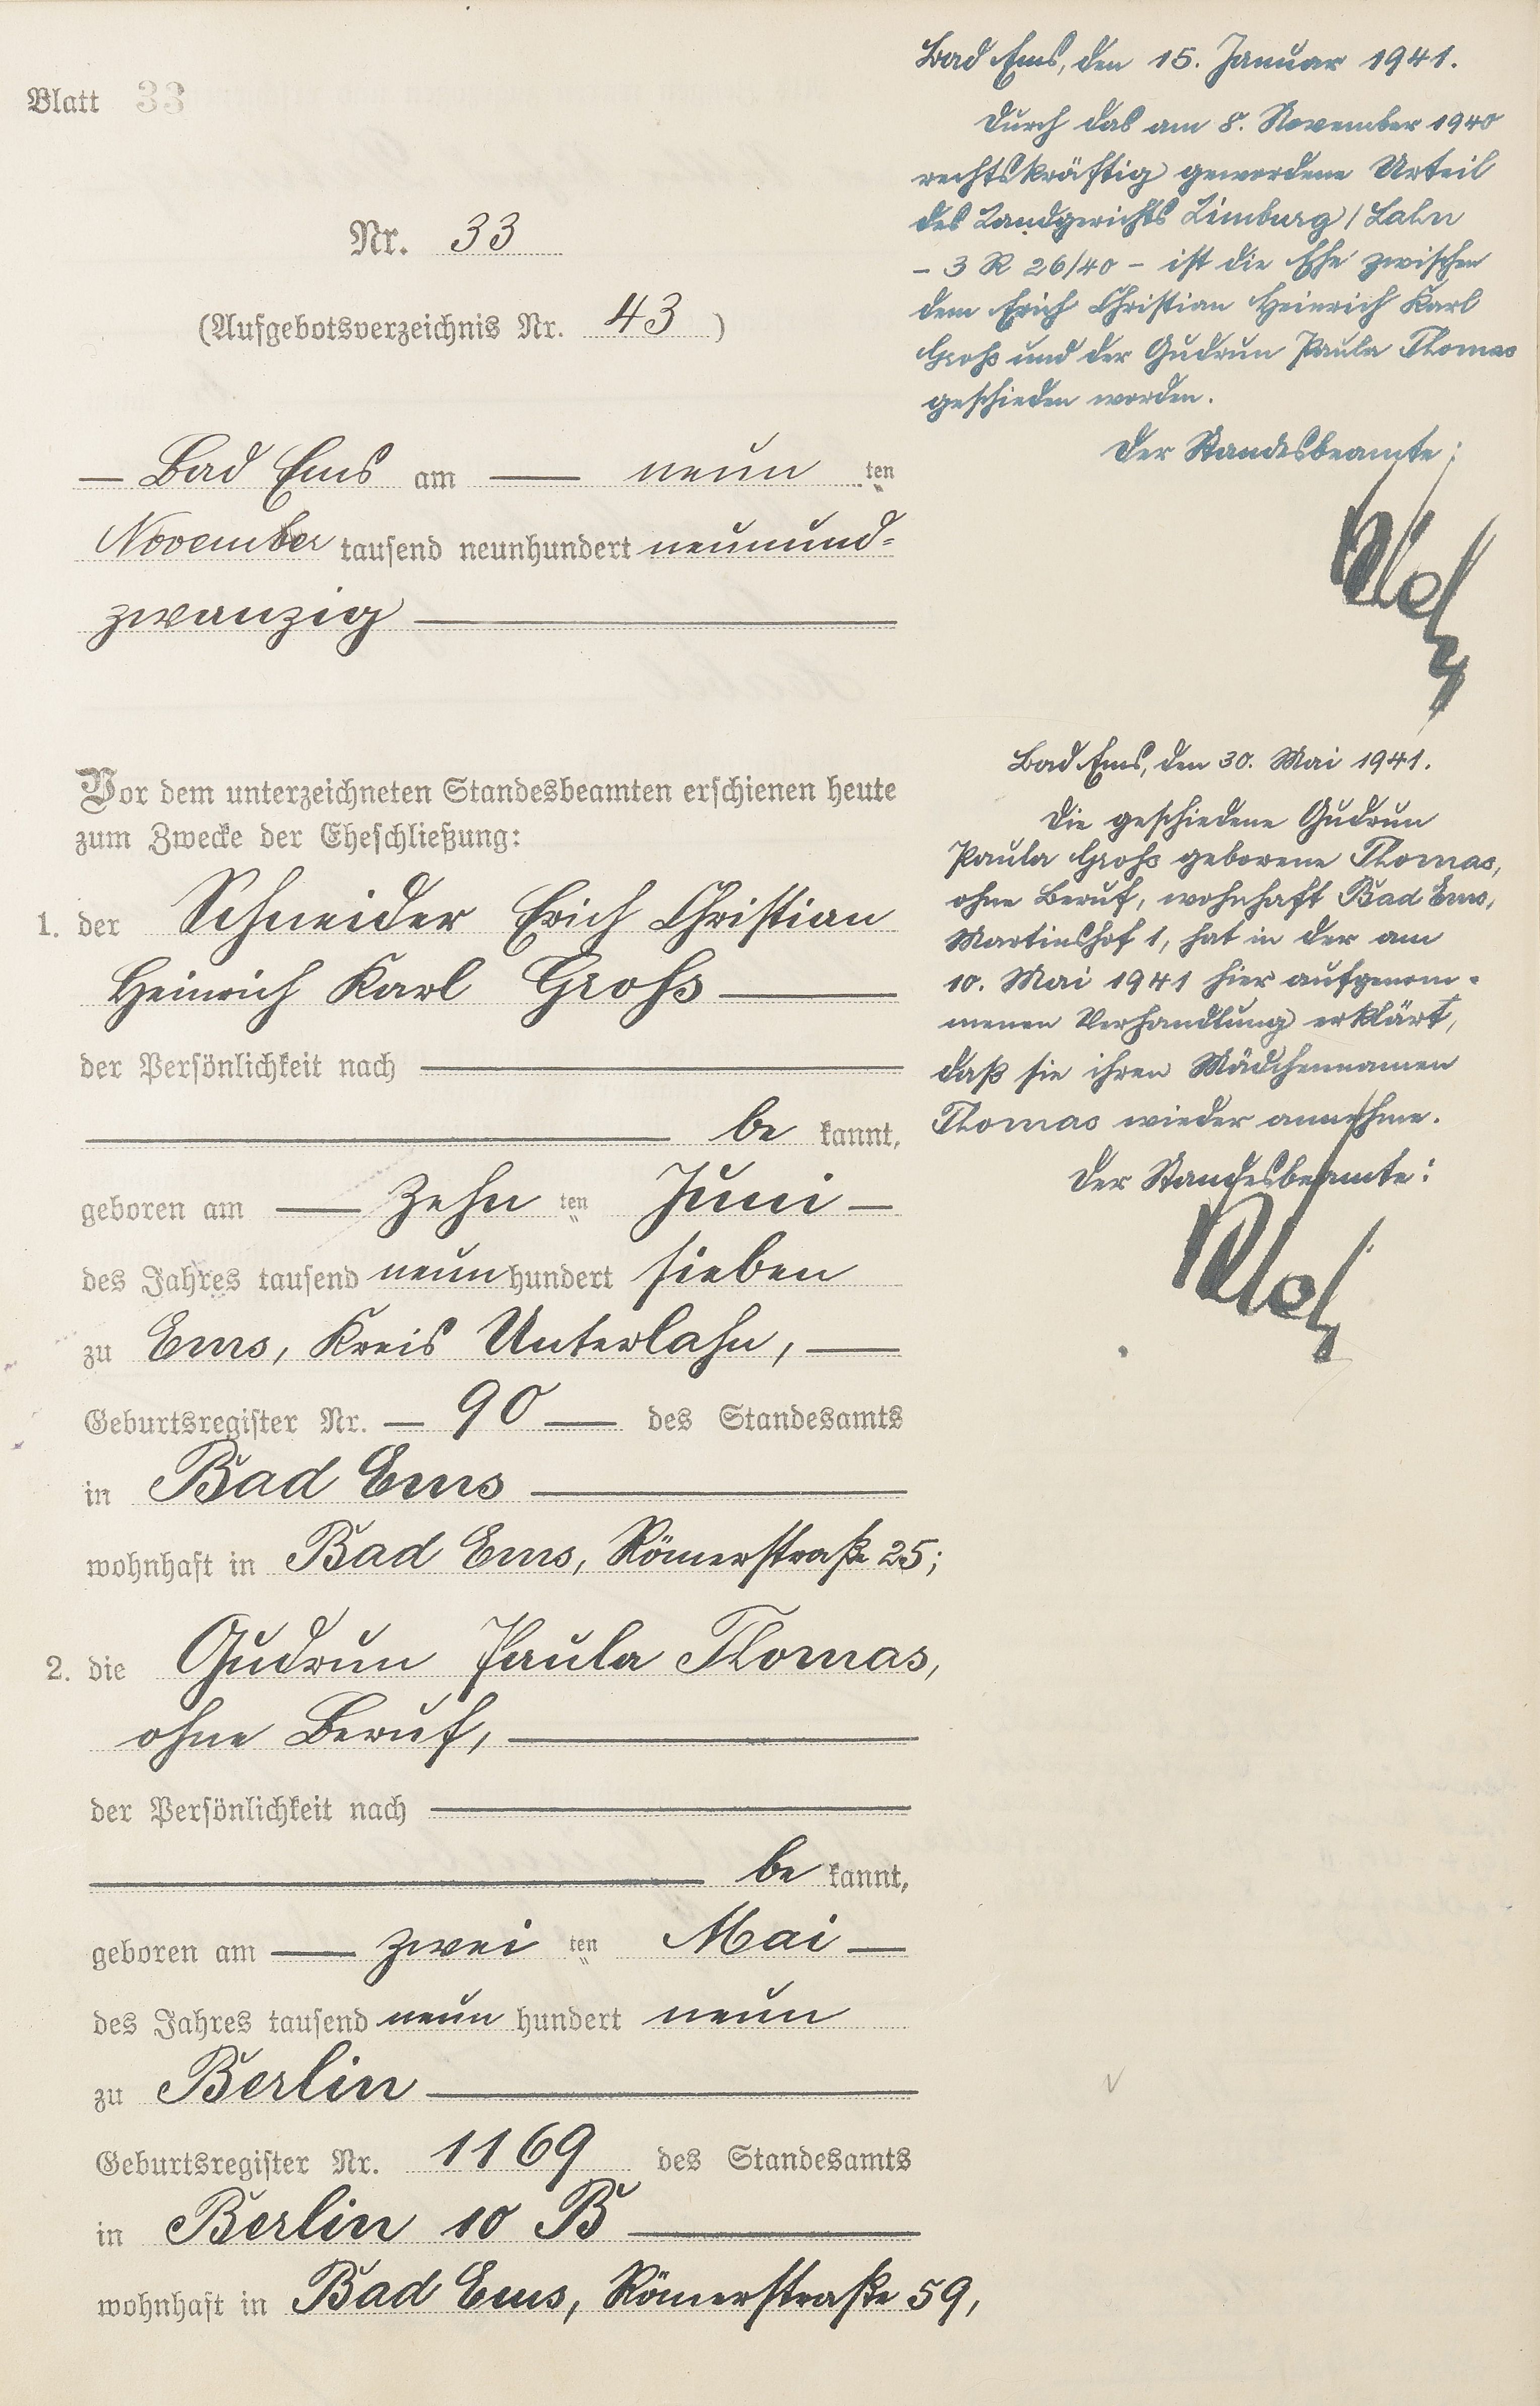 Blatt 33
Nr. 33
(Aufgebotsverzeichnis Nr. 43)
— Bad Ems am — neun ten
November tausend neunhundert neunund-
zwanzig —
Vor dem unterzeichneten Standesbeamten erschienen heute
zum Zwecke der Eheschließung:
1. der Schneider Erich Christian
Heinrich Karl Groß —
der Persönlichkeit nach —
— be kannt,
geboren am — zehn ten Juni —
des Jahres tausend neun hundert sieben
zu Ems, Kreis Unterlahn, —
Geburtsregister Nr. — 90 — des Standesamts
in Bad Ems —
wohnhaft in Bad Ems, Römerstraße 25;
2. die Gudrun Paula Thomas,
ohne Beruf, —
der Persönlichkeit nach —
— be kannt,
geboren am — zwei ten Mai —
des Jahres tausend neun hundert neun
zu Berlin —
Geburtsregister Nr. 1169 des Standesamts
in Berlin 10 B —
wohnhaft in Bad Ems, Römerstraße 59,
Bad Ems, den 15. Januar 1941.
Durch das am 8. November 1940
rechtskräftig gewordene Urteil
des Landgerichts Limburg/Lahn
- 3 R 26/40 - ist die Ehe zwischen
dem Erich Christian Heinrich Karl
Groß und der Gudrun Paula Thomas
geschieden worden.
Der Standesbeamte:
Bad Ems, den 30. Mai 1941.
Die geschiedene Gudrun
Paula Groß geborene Thomas,
ohne Beruf, wohnhaft Bad Ems,
Martinshof 1, hat in der am
10. Mai 1941 hier aufgenom-
menen Verhandlung erklärt,
daß sie ihren Mädchennamen
Thomas wieder annehme.
Der Standesbeamte: